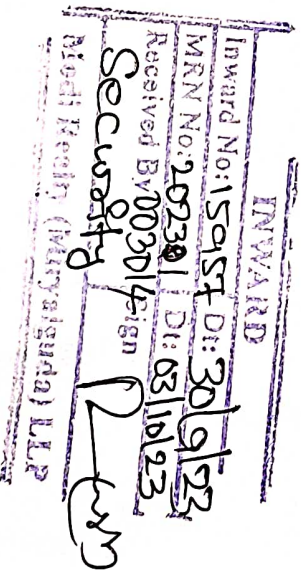 INWARD
Inward No: 15957 Dt: 30/9/23
MRN No: 202381 Dt: 03/10/23
Received By 003014 Sign
Security
Modi Realty (Miryalguda) LLP